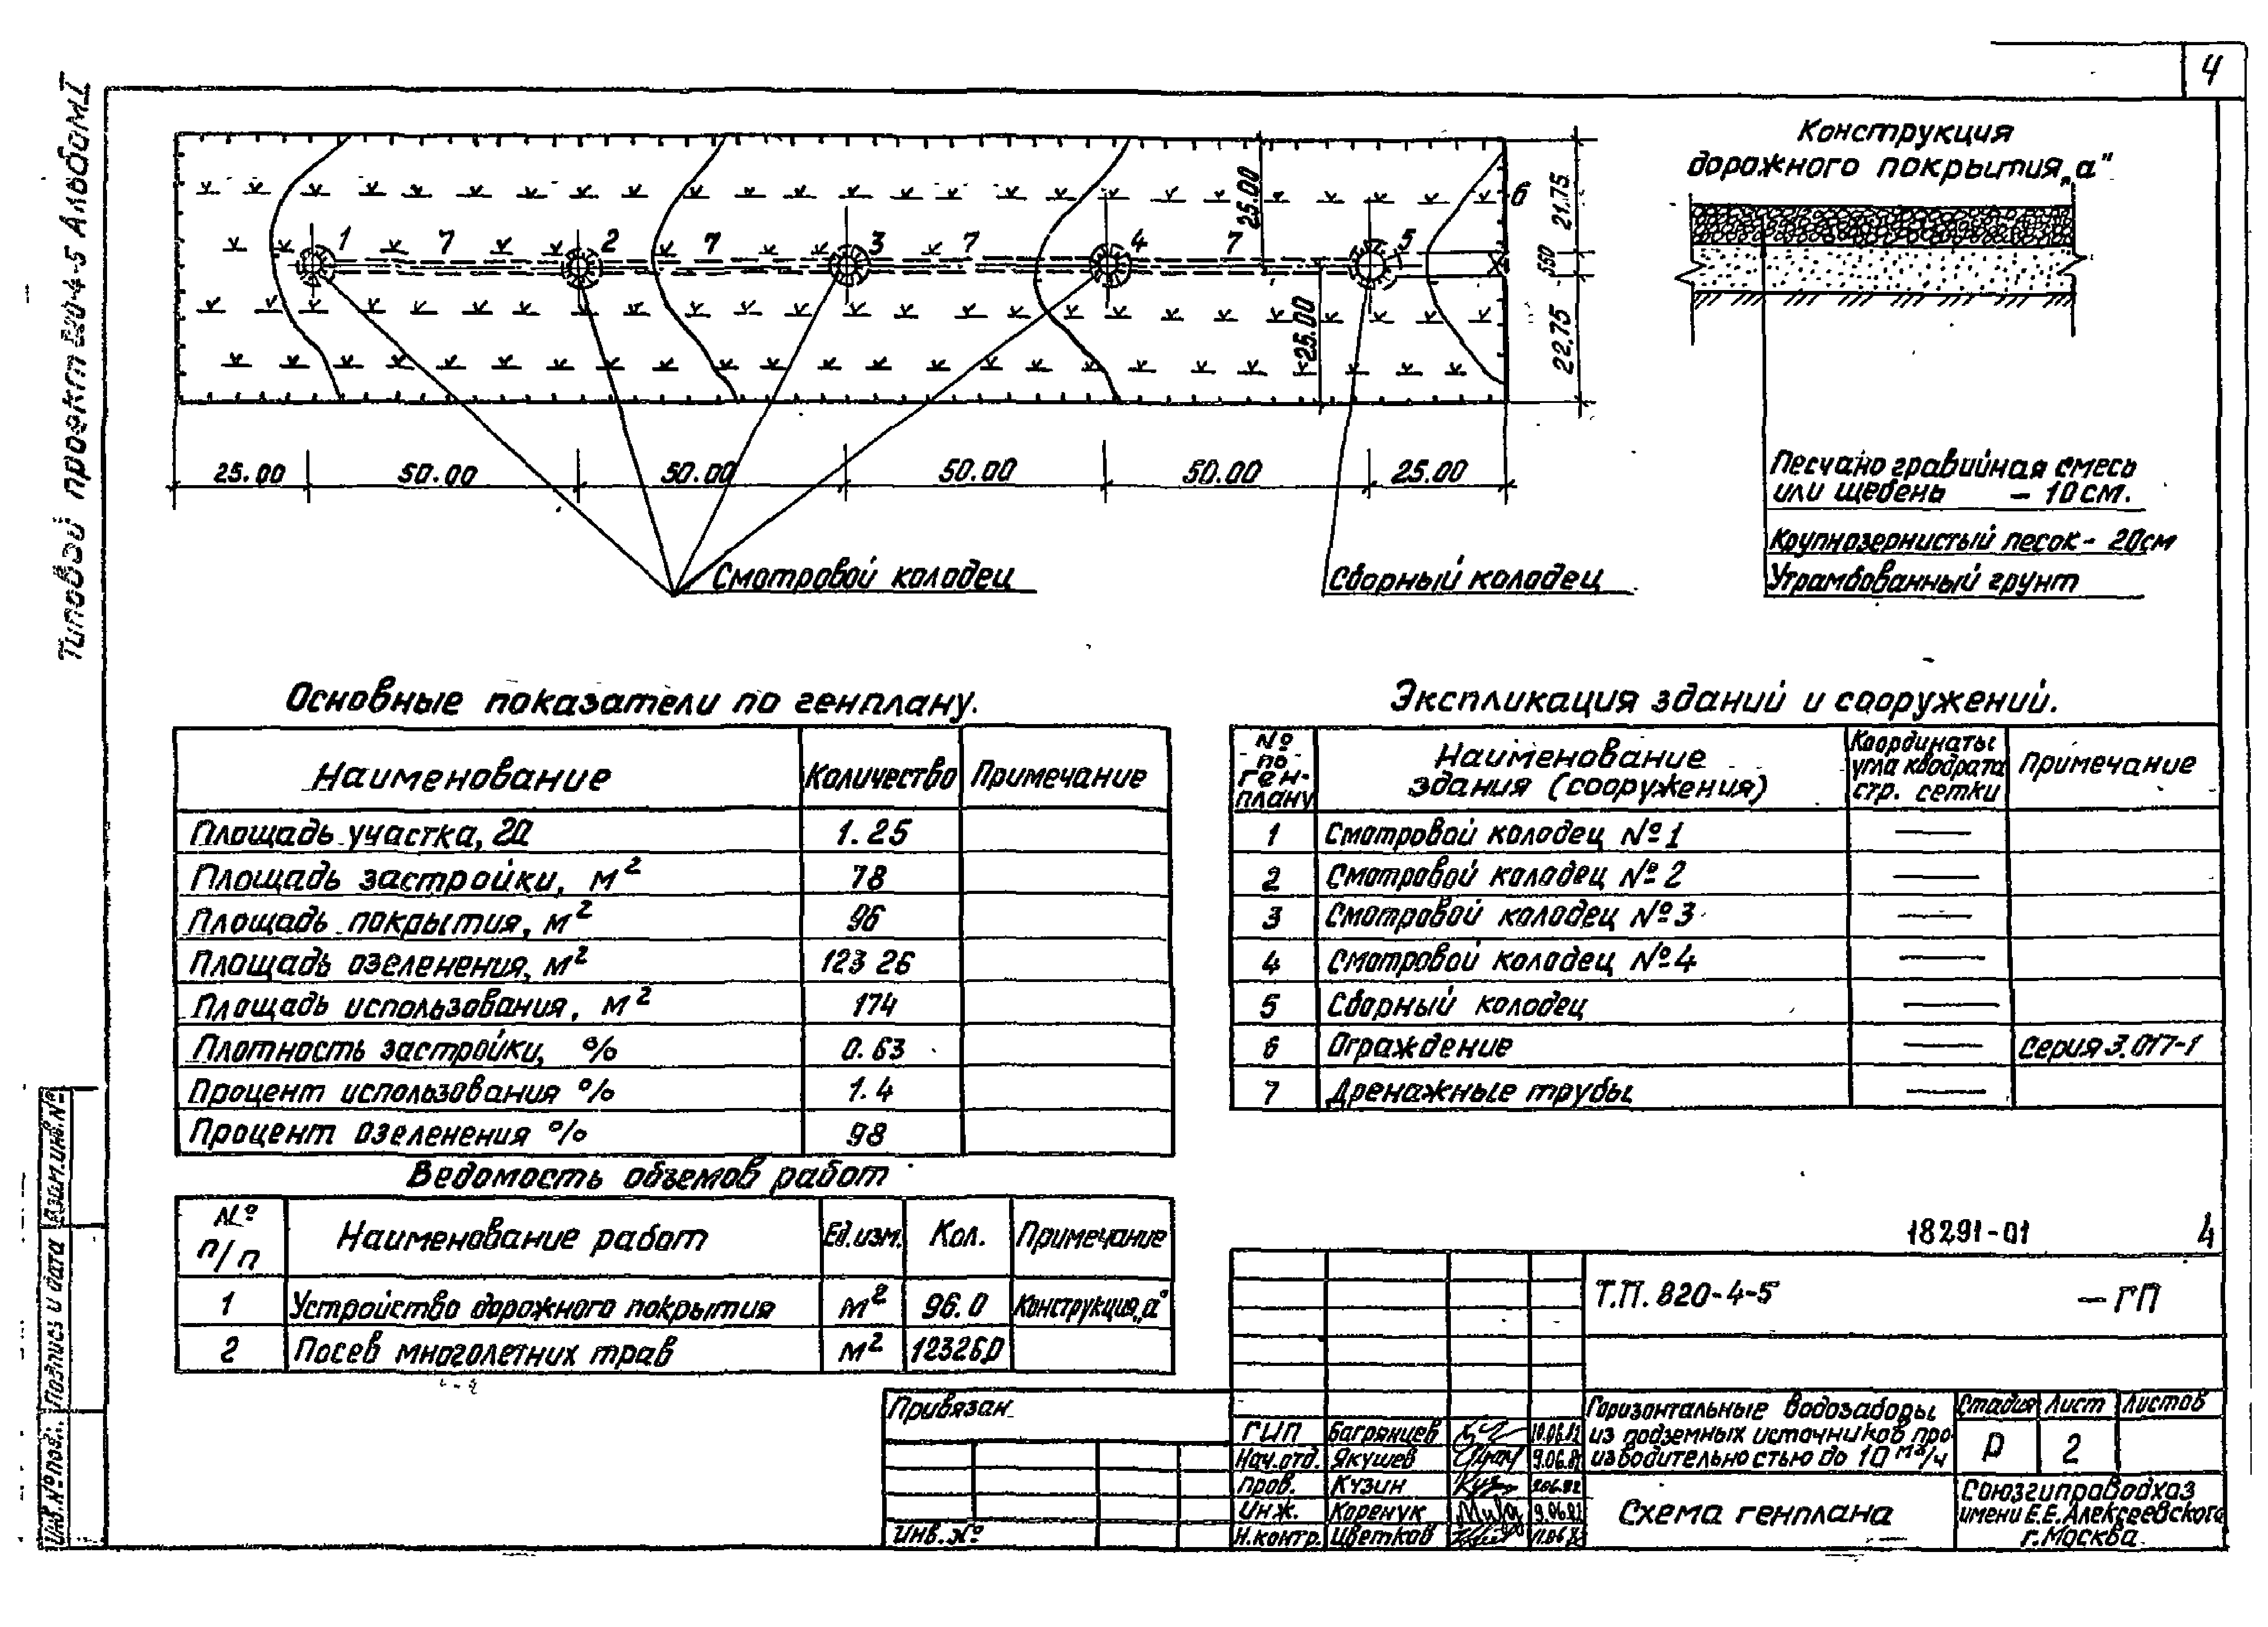 4
Типовой проект 820-4-5 Альбом I
Конструкция
дорожного покрытия „а"
1 7 2 7 3 7 4 7 5 6
25.00
25.00
21.75
550
22.75
25.00 50.00 50.00 50.00 50.00 25.00
Смотровой колодец
Сборный колодец
Песчано гравийная смесь
или щебень - 10см.
Крупнозернистый песок - 20см
Утрамбованный грунт
Основные показатели по генплану.
Наименование Количество Примечание
Площадь участка, га 1.25
Площадь застройки, м² 78
Площадь покрытия, м² 96
Площадь озеленения, м² 12326
Площадь использования, м² 174
Плотность застройки, % 0.63
Процент использования % 1.4
Процент озеленения % 98
Экспликация зданий и сооружений.
№ по генплану Наименование здания (сооружения) Координаты угла квадрата стр. сетки Примечание
1 Смотровой колодец №1 —
2 Смотровой колодец №2 —
3 Смотровой колодец №3 —
4 Смотровой колодец №4 —
5 Сборный колодец —
6 Ограждение — Серия 3.017-1
7 Дренажные трубы —
Ведомость объемов работ
№ п/п Наименование работ Ед.изм. Кол. Примечание
1 Устройство дорожного покрытия м² 96.0 Конструкция „а"
2 Посев многолетних трав м² 12326,0
18291-01 4
Т.П. 820-4-5 - ГП
Привязан
Инв.№
ГИП Багрянцев 10.06.82
Нач.отд. Якушев 9.06.82
Пров. Кузин
Инж. Коренук 9.06.82
Н.контр. Цветков
Горизонтальные водозаборы
из подземных источников про-
изводительностью до 10 м³/ч
Стадия Лист Листов
Р 2
Схема генплана
Союзгипроводхоз
имени Е.Е.Алексеевского
г.Москва
Инв.№ подл. Подпись и дата Взам.инв.№